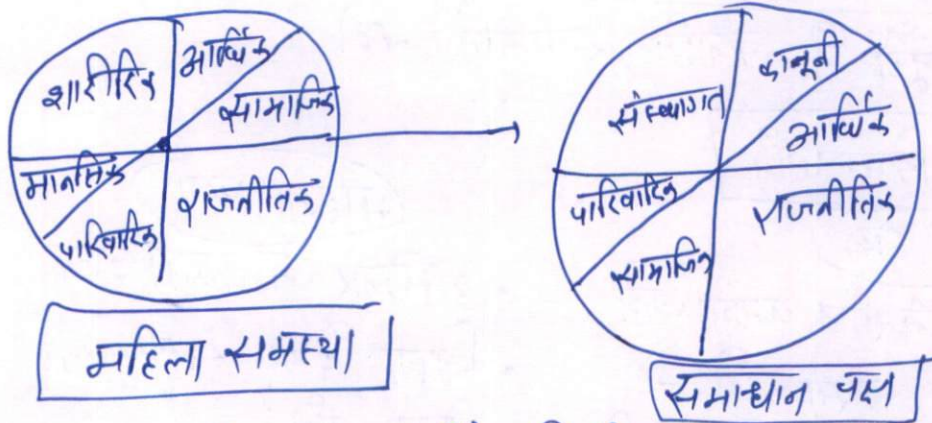 शारीरिक
आर्थिक
सामाजिक
मानसिक
पारिवारिक
राजनीतिक
महिला समस्या
संस्थागत
कानूनी
आर्थिक
पारिवारिक
राजनीतिक
सामाजिक
समाधान पक्ष